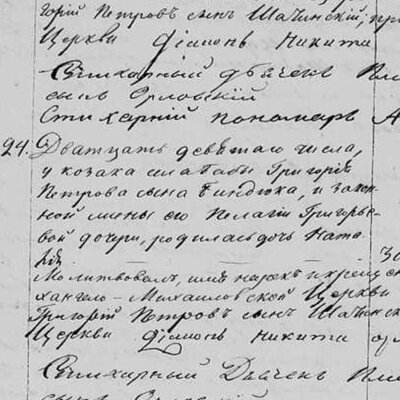 горій Петровъ сынъ Шачинскій, при
Церкви Діаконъ Никита
Стихарный дьячекъ Пла
сынъ Орловскій
Стихарній пономаръ А
24. Дватцать девѣтаго числа,
у козака Григорія
Петрова сына Биндюка, и закон
ной жены его Пелагіи Григорье
вой дочери, родилась дочь Ната
лія
Молитвовалъ, имя нарекъ и крестилъ
хангело-Михаиловской Церкви
Григорій Петровъ сынъ Шачинск
Церкви Діаконъ Никита ор
Стихарный Дьячекъ Пла
сынъ Орловскій